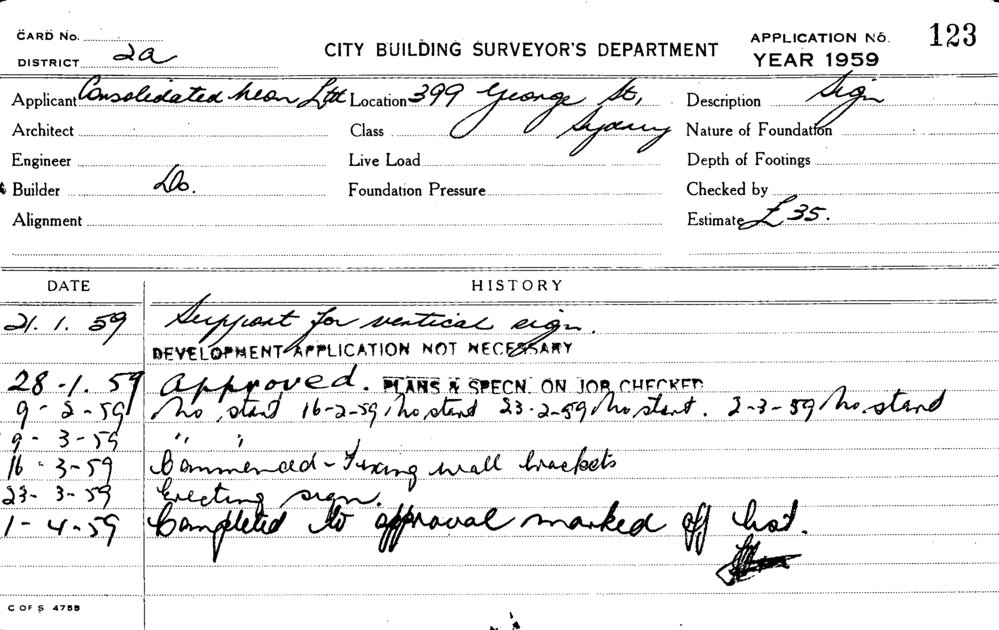 CARD No. APPLICATION No. 123
DISTRICT 2a CITY BUILDING SURVEYOR'S DEPARTMENT YEAR 1959
Applicant Consolidated Neon Ltd Location 399 George St, Description Sign
Architect Class Sydney Nature of Foundation
Engineer Live Load Depth of Footings
Builder Do. Foundation Pressure Checked by
Alignment Estimate £35.
DATE HISTORY
21. 1. 59 Support for vertical sign.
DEVELOPMENT APPLICATION NOT NECESSARY
28-1. 59 Approved. PLANS & SPECN. ON JOB CHECKED
9-2-59 No start 16-2-59, No start 23-2-59 No start. 2-3-59 No start
9-3-59 " "
16-3-59 Commenced - Fixing wall brackets
23-3-59 Erecting sign.
1-4-59 Completed to approval marked off list.
C OF S 4758